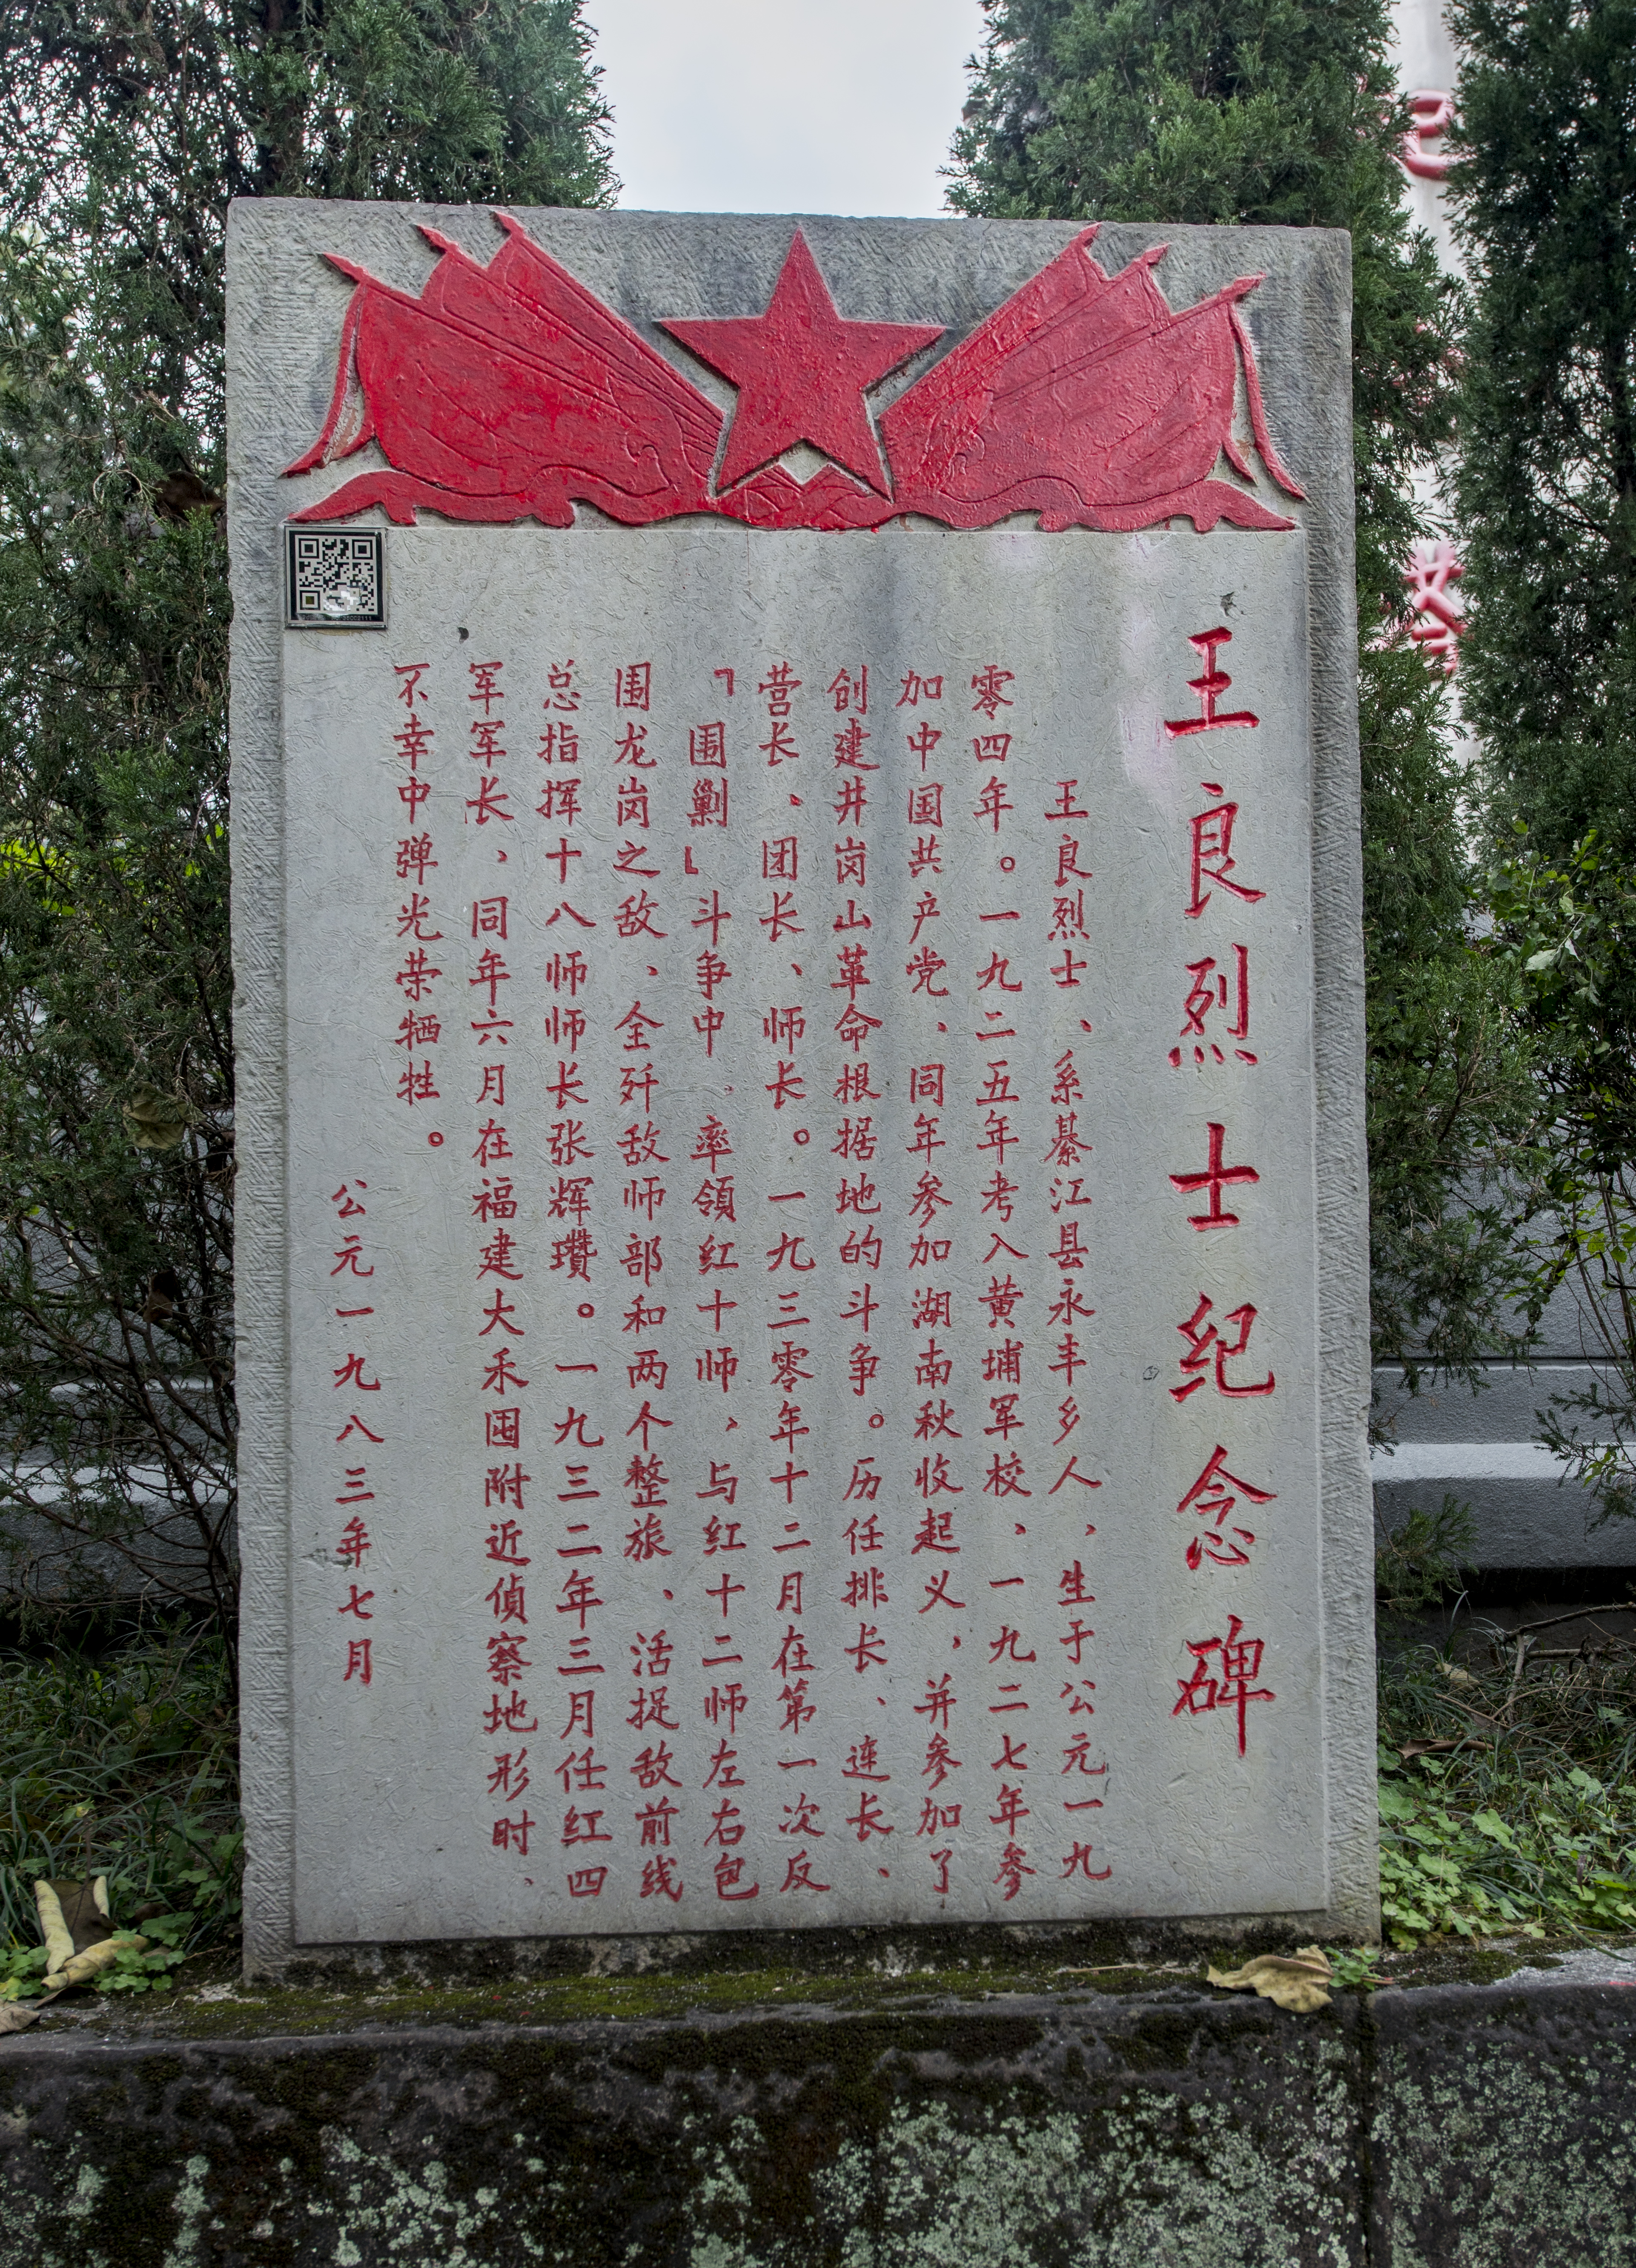 王良烈士纪念碑
王良烈士、系綦江县永丰乡人,生于公元一九
零四年。一九二五年考入黄埔军校、一九二七年参
加中国共产党、同年参加湖南秋收起义,并参加了
创建井岗山革命根据地的斗争。历任排长、连长、
营长、团长、师长。一九三零年十二月在第一次反
「围剿」斗争中.率领红十师,与红十二师左右包
围龙岗之敌、全歼敌师部和两个整旅、活捉敌前线
总指挥十八师师长张辉瓒。一九三二年三月任红四
军军长、同年六月在福建大禾囤附近侦察地形时、
不幸中弹光荣牺牲。
公元一九八三年七月